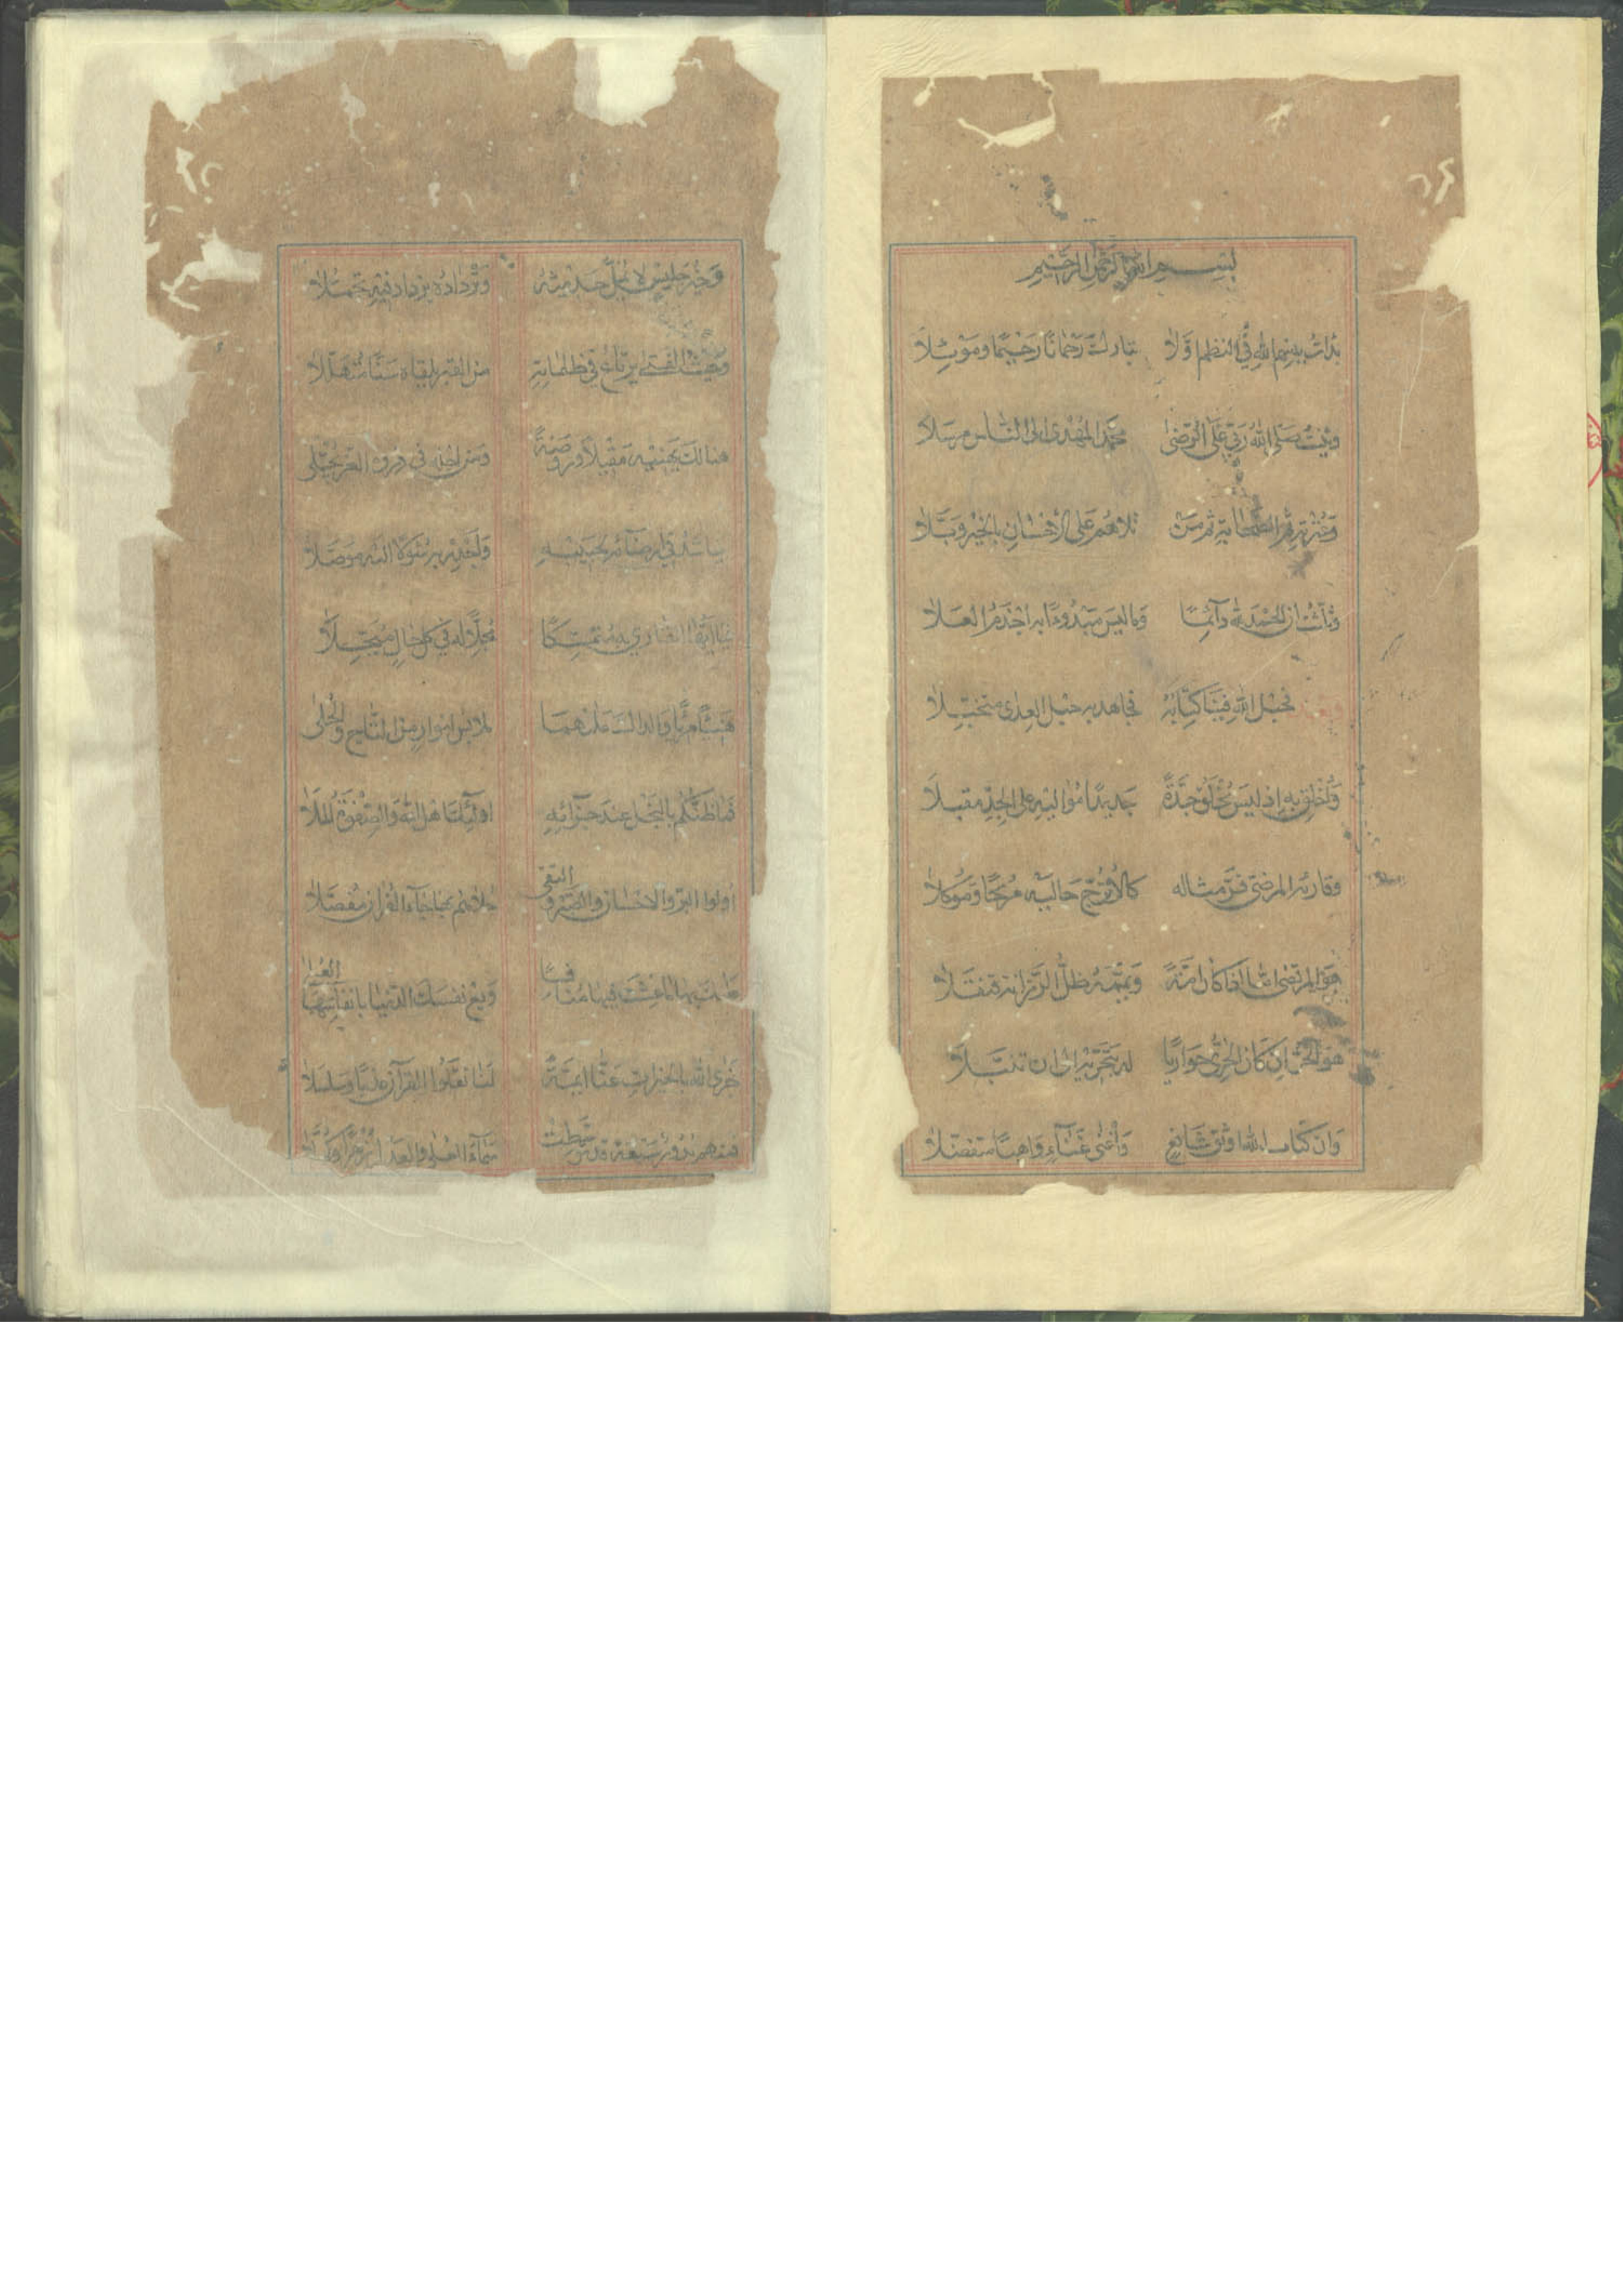 بسم الله الرحمن الرحيم
بدات ببسم الله في النظم اولا تباركت رحمانا رحيما وموئلا
وثنيت صلى الله ربي على الرضى محمد المهدى الى الناس مرسلا
وعترته ثم الصحابة ثم من تلاهم على الاحسان بالخير وبلا
وثلثت ان الحمد لله دائما وما ليس مبدوءا به اجذم العلا
وبعد فحبل الله فينا كتابه فجاهد به حبل العدى متحبلا
واخلق به اذ ليس يخلق جدة جديدا مواليه على الجد مقبلا
وقارئه المرضي قر مثاله كالاترج حاليه مريحا وموكلا
هو المرتضى اما اذا كان امة ويممه ظل الرزانة قنقلا
هو الحر ان كان الحري حواريا له بتحريه الى ان تنبلا
وان كتاب الله اوثق شافع واغنى غناء واهبا متفضلا
وخير جليس لا يمل حديثه وترداده يزداد فيه تجملا
وحيث الفتى يرتاع في ظلماته من القبر يلقاه سنا متهللا
هنالك يهنيه مقيلا وروضة ومن اجله في ذروة العز يجتلى
يناشد في ارضائه لحبيبه واجدر به سؤلا اليه موصلا
فيا ايها القاري به متمسكا مجلا له في كل حال مبجلا
هنيئا مريا والداك عليهما ملابس انوار من التاج والحلى
فما ظنكم بالنجل عند جزائه اولئك اهل الله والصفوة الملا
اولوا البر والاحسان والصبر والتقى حلاهم بها جاء القران مفصلا
عليك بها ما عشت فيها منافسا وبع نفسك الدنيا بانفاسها العلا
جزى الله بالخيرات عنا ايمة لنا نقلوا القرآن عذبا وسلسلا
فمنهم بدور سبعة قد توسطت سماء العلى والعدل زهرا وكملا